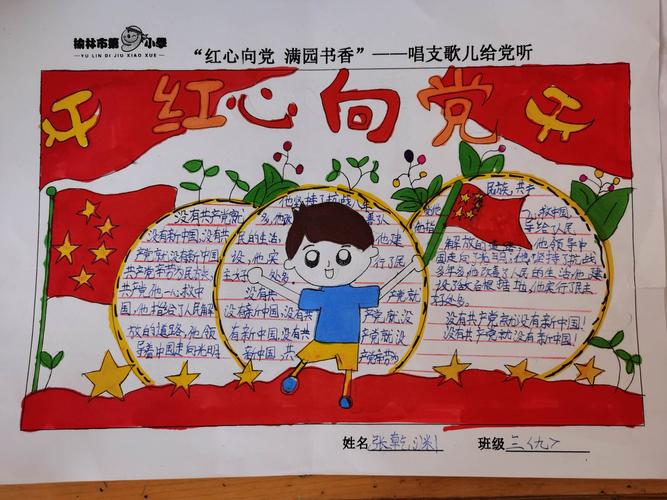 榆林市第九小学
YU LIN DI JIU XIAO XUE
“红心向党 满园书香”——唱支歌儿给党听
红心向党
没有共产党就
没有新中国,没有
共产党,就没有新中国
共产党辛劳为民族
共产党,他一心救中
国,他指给了人民解
放的道路,他领
导着中国走向光明
他坚持了抗战八年
的生活,
设,他实
主好处多
没有共
有新中国,没有
新中国,共
他建
行了民
产党,就没
产党,就没
产党辛劳
民族,共产
一心救中国
解放的道路,他领导中
国走向了光明,他坚持了抗战
多年,他改善了人民的生活,他建
设了敌后根据地,他实行了民主
好处多。
没有共产党就没有新中国!
没有共产党就没有新中国!
姓名 张乾
班级 三(九)